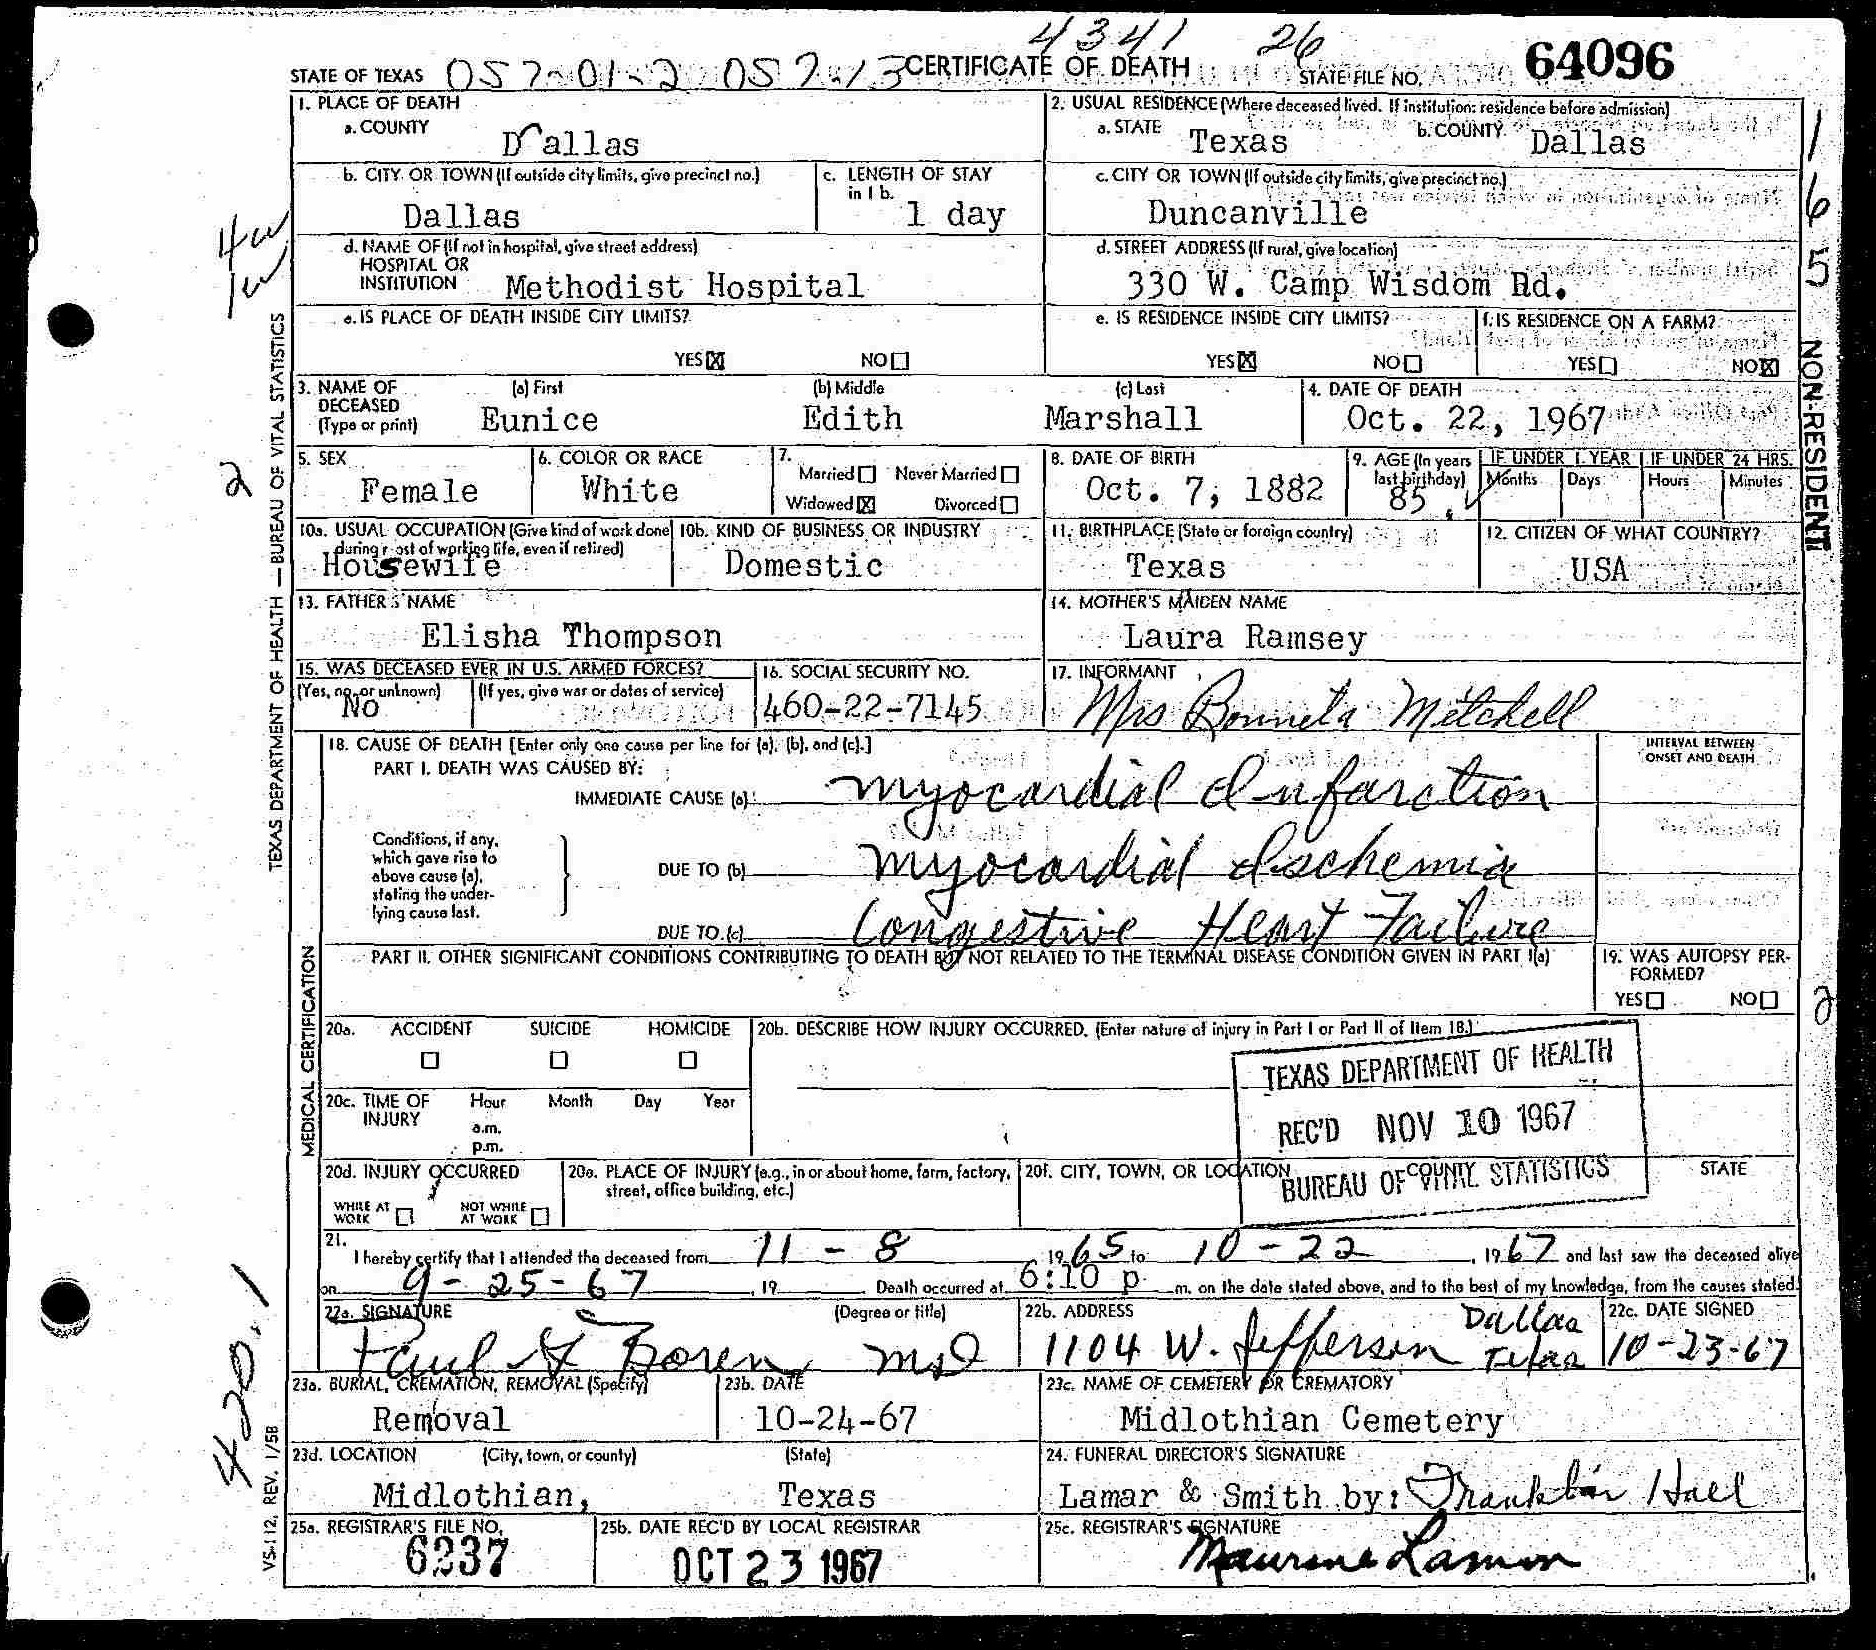 4341 26
STATE OF TEXAS 057-01-2 057-13 CERTIFICATE OF DEATH STATE FILE NO. 64096
1. PLACE OF DEATH
a. COUNTY
Dallas
2. USUAL RESIDENCE (Where deceased lived. If institution: residence before admission)
a. STATE Texas b. COUNTY Dallas
b. CITY OR TOWN (If outside city limits, give precinct no.)
Dallas
c. LENGTH OF STAY in 1b.
1 day
c. CITY OR TOWN (If outside city limits, give precinct no.)
Duncanville
d. NAME OF (If not in hospital, give street address)
HOSPITAL OR
INSTITUTION Methodist Hospital
d. STREET ADDRESS (If rural, give location)
330 W. Camp Wisdom Rd.
e. IS PLACE OF DEATH INSIDE CITY LIMITS?
YES X NO
e. IS RESIDENCE INSIDE CITY LIMITS?
YES X NO
f. IS RESIDENCE ON A FARM?
YES NO X
3. NAME OF DECEASED (Type or print)
(a) First (b) Middle (c) Last
Eunice Edith Marshall
4. DATE OF DEATH
Oct. 22, 1967
5. SEX
Female
6. COLOR OR RACE
White
7.
Married Never Married
Widowed X Divorced
8. DATE OF BIRTH
Oct. 7, 1882
9. AGE (In years last birthday)
85
IF UNDER 1 YEAR IF UNDER 24 HRS.
Months Days Hours Minutes
10a. USUAL OCCUPATION (Give kind of work done during most of working life, even if retired)
Housewife
10b. KIND OF BUSINESS OR INDUSTRY
Domestic
11. BIRTHPLACE (State or foreign country)
Texas
12. CITIZEN OF WHAT COUNTRY?
USA
13. FATHER'S NAME
Elisha Thompson
14. MOTHER'S MAIDEN NAME
Laura Ramsey
15. WAS DECEASED EVER IN U.S. ARMED FORCES?
(Yes, no, or unknown) (If yes, give war or dates of service)
No
16. SOCIAL SECURITY NO.
460-22-7145
17. INFORMANT
Mrs Bonneta Mitchell
18. CAUSE OF DEATH [Enter only one cause per line for (a), (b), and (c).]
INTERVAL BETWEEN ONSET AND DEATH
PART I. DEATH WAS CAUSED BY:
IMMEDIATE CAUSE (a): myocardial Infarction
Conditions, if any,
which gave rise to
above cause (a),
stating the under-
lying cause last.
DUE TO (b) myocardial Ischemia
DUE TO (c) Congestive Heart Failure
PART II. OTHER SIGNIFICANT CONDITIONS CONTRIBUTING TO DEATH BUT NOT RELATED TO THE TERMINAL DISEASE CONDITION GIVEN IN PART I(a)
19. WAS AUTOPSY PER-
FORMED?
YES NO
20a. ACCIDENT SUICIDE HOMICIDE
20b. DESCRIBE HOW INJURY OCCURRED. (Enter nature of injury in Part I or Part II of Item 18.)
20c. TIME OF INJURY Hour Month Day Year
a.m.
p.m.
TEXAS DEPARTMENT OF HEALTH
REC'D NOV 10 1967
BUREAU OF VITAL STATISTICS
20d. INJURY OCCURRED
WHILE AT WORK NOT WHILE AT WORK
20e. PLACE OF INJURY (e.g., in or about home, farm, factory, street, office building, etc.)
20f. CITY, TOWN, OR LOCATION COUNTY STATE
21.
I hereby certify that I attended the deceased from 11-8 1965 to 10-22, 1967 and last saw the deceased alive
on 9-25-67, 19 Death occurred at 6:10 p m. on the date stated above, and to the best of my knowledge, from the causes stated.
22a. SIGNATURE (Degree or title)
Paul Boren MD
22b. ADDRESS
1104 W. Jefferson Dallas Texas
22c. DATE SIGNED
10-23-67
23a. BURIAL, CREMATION, REMOVAL (Specify)
Removal
23b. DATE
10-24-67
23c. NAME OF CEMETERY OR CREMATORY
Midlothian Cemetery
23d. LOCATION (City, town, or county) (State)
Midlothian, Texas
24. FUNERAL DIRECTOR'S SIGNATURE
Lamar & Smith by: Franklin Hall
25a. REGISTRAR'S FILE NO.
6237
25b. DATE REC'D BY LOCAL REGISTRAR
OCT 23 1967
25c. REGISTRAR'S SIGNATURE
Maurine Lamon
TEXAS DEPARTMENT OF HEALTH — BUREAU OF VITAL STATISTICS
MEDICAL CERTIFICATION
VS-112, REV. 1/58
4w
1w
2
420.1
165
NON-RESIDENT
2